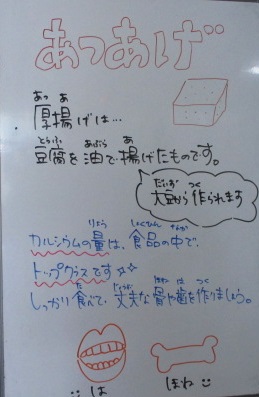 あつあげ
あつ あ
厚揚げは…
とうふ あぶら あ
豆腐を油で揚げたものです。
だいず つく
大豆から作られます
りょう しょくひん なか
カルシウムの量は、食品の中で、
トップクラスです☆☆
た じょうぶ ほね は つく
しっかり食べて、丈夫な骨や歯を作りましょう。
は ほね